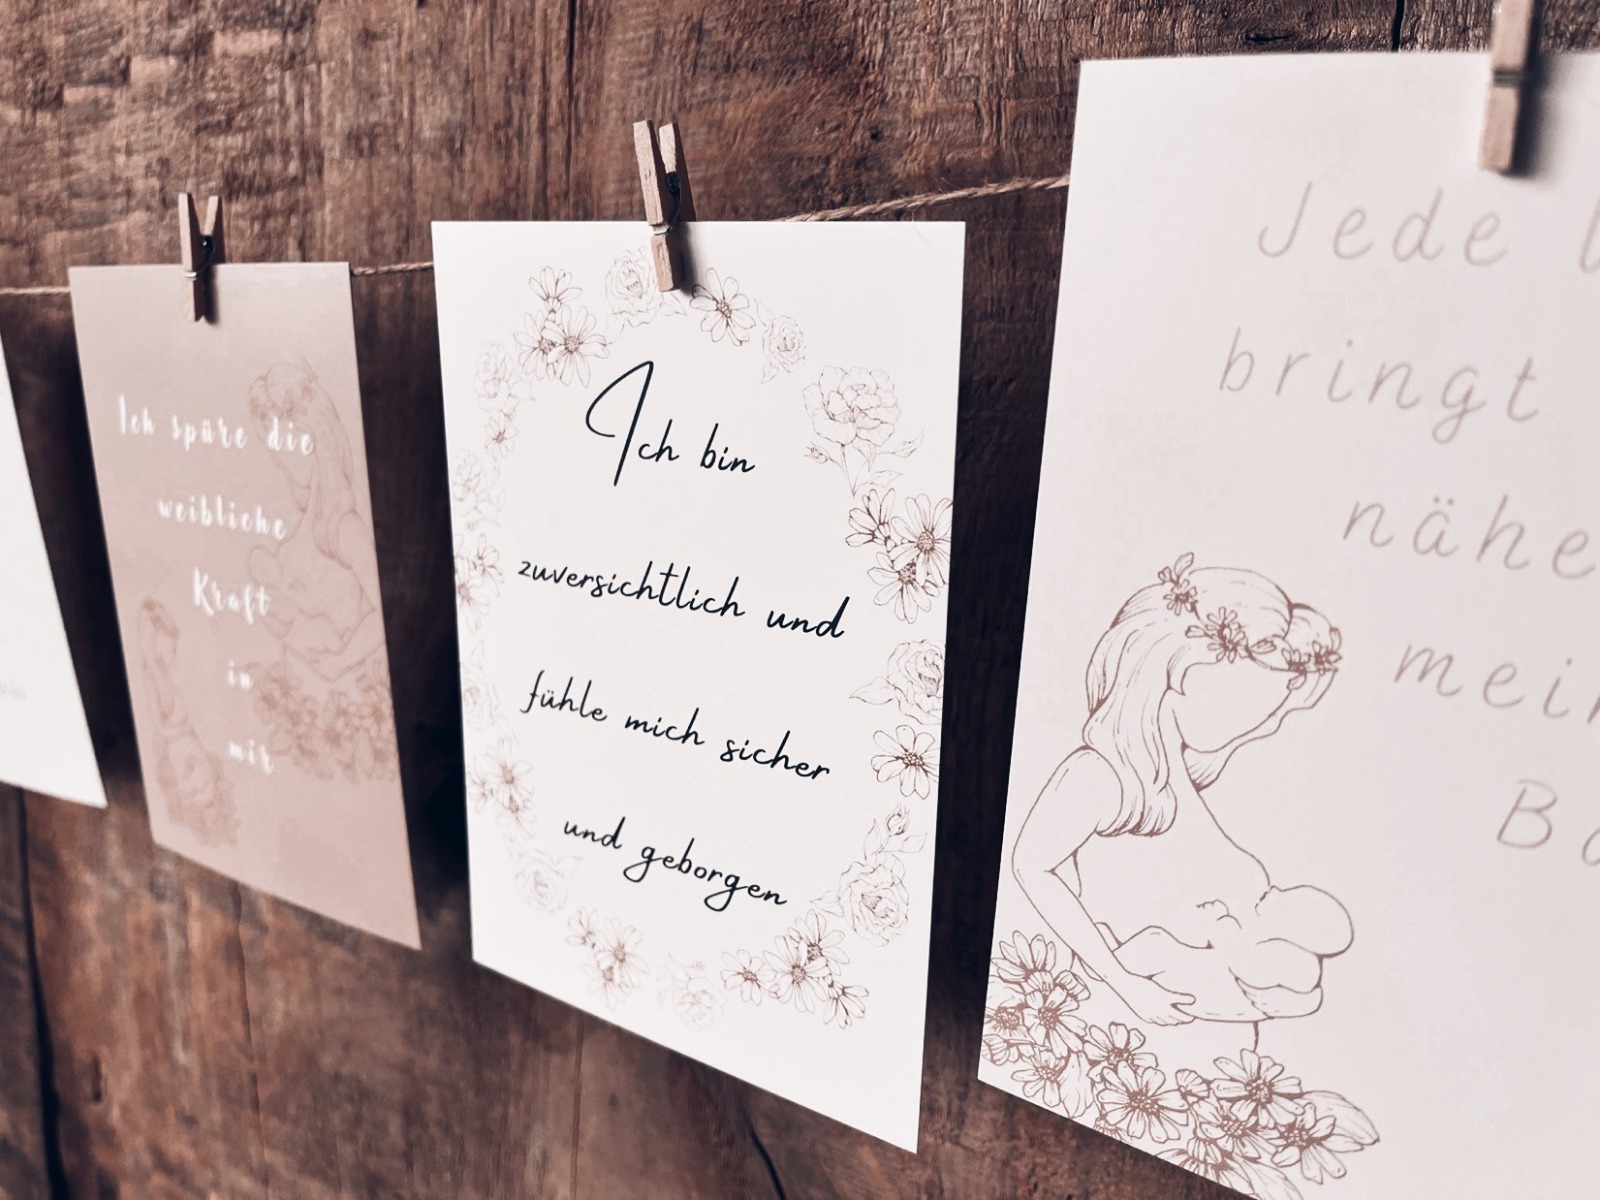 Ich spüre die
weibliche
Kraft
in
mir
Ich bin
zuversichtlich und
fühle mich sicher
und geborgen
Jede
bringt